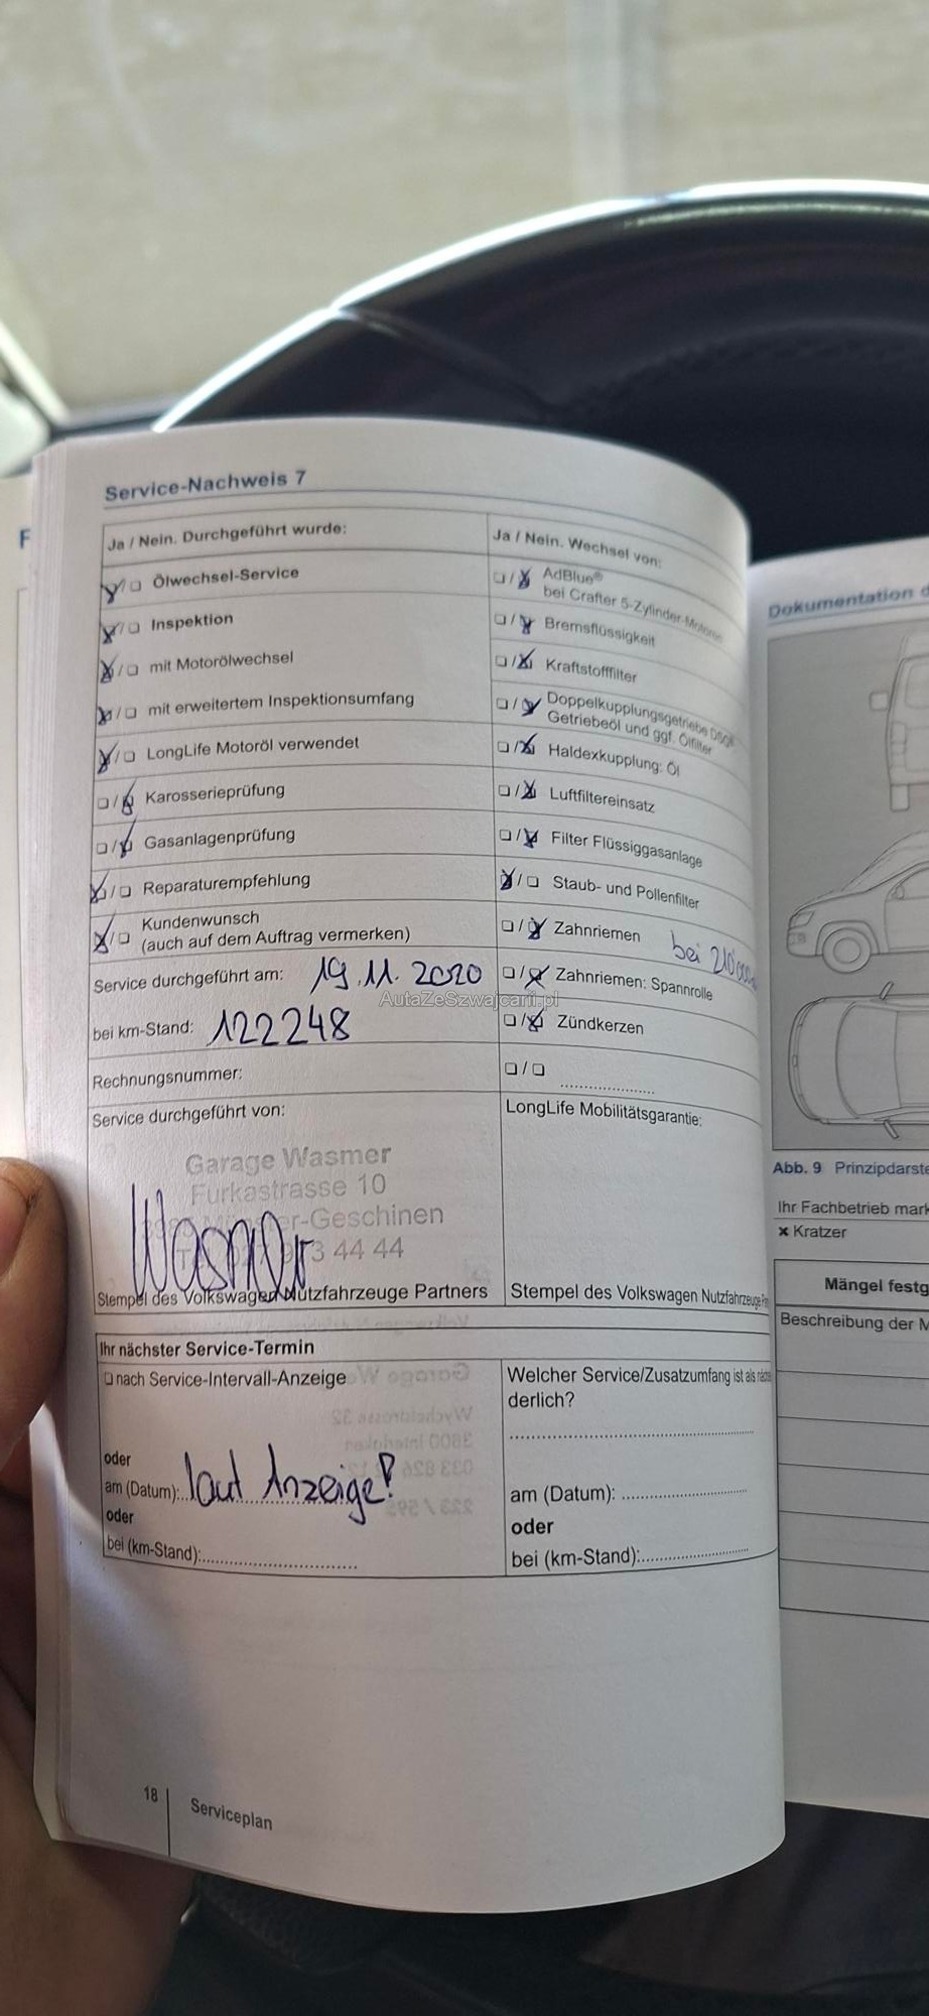 Service-Nachweis 7
Ja / Nein. Durchgeführt wurde:
Ölwechsel-Service
Inspektion
mit Motorölwechsel
mit erweitertem Inspektionsumfang
LongLife Motoröl verwendet
Karosserieprüfung
Gasanlagenprüfung
Reparaturempfehlung
Kundenwunsch
(auch auf dem Auftrag vermerken)
Service durchgeführt am: 19.11.2020
bei km-Stand: 122248
Rechnungsnummer:
Service durchgeführt von:
Garage Wasmer
Furkastrasse 10
r-Geschinen
3 44 44
Wasmer
Stempel des Volkswagen Nutzfahrzeuge Partners
Ja / Nein. Wechsel von:
AdBlue®
bei Crafter 5-Zylinder-Motoren
Bremsflüssigkeit
Kraftstofffilter
Doppelkupplungsgetriebe DSG®
Getriebeöl und ggf. Ölfilter
Haldexkupplung: Öl
Luftfiltereinsatz
Filter Flüssiggasanlage
Staub- und Pollenfilter
Zahnriemen bei 210'000
Zahnriemen: Spannrolle
Zündkerzen
LongLife Mobilitätsgarantie:
Stempel des Volkswagen Nutzfahrzeuge
AutaZeSzwajcarii.pl
Ihr nächster Service-Termin
nach Service-Intervall-Anzeige
oder
am (Datum): laut Anzeige!
oder
bei (km-Stand):
Welcher Service/Zusatzumfang ist als
derlich?
am (Datum):
oder
bei (km-Stand):
18
Serviceplan
F
Dokumentation d
Abb. 9 Prinzipdarste
Ihr Fachbetrieb mark
x Kratzer
Mängel festg
Beschreibung der M